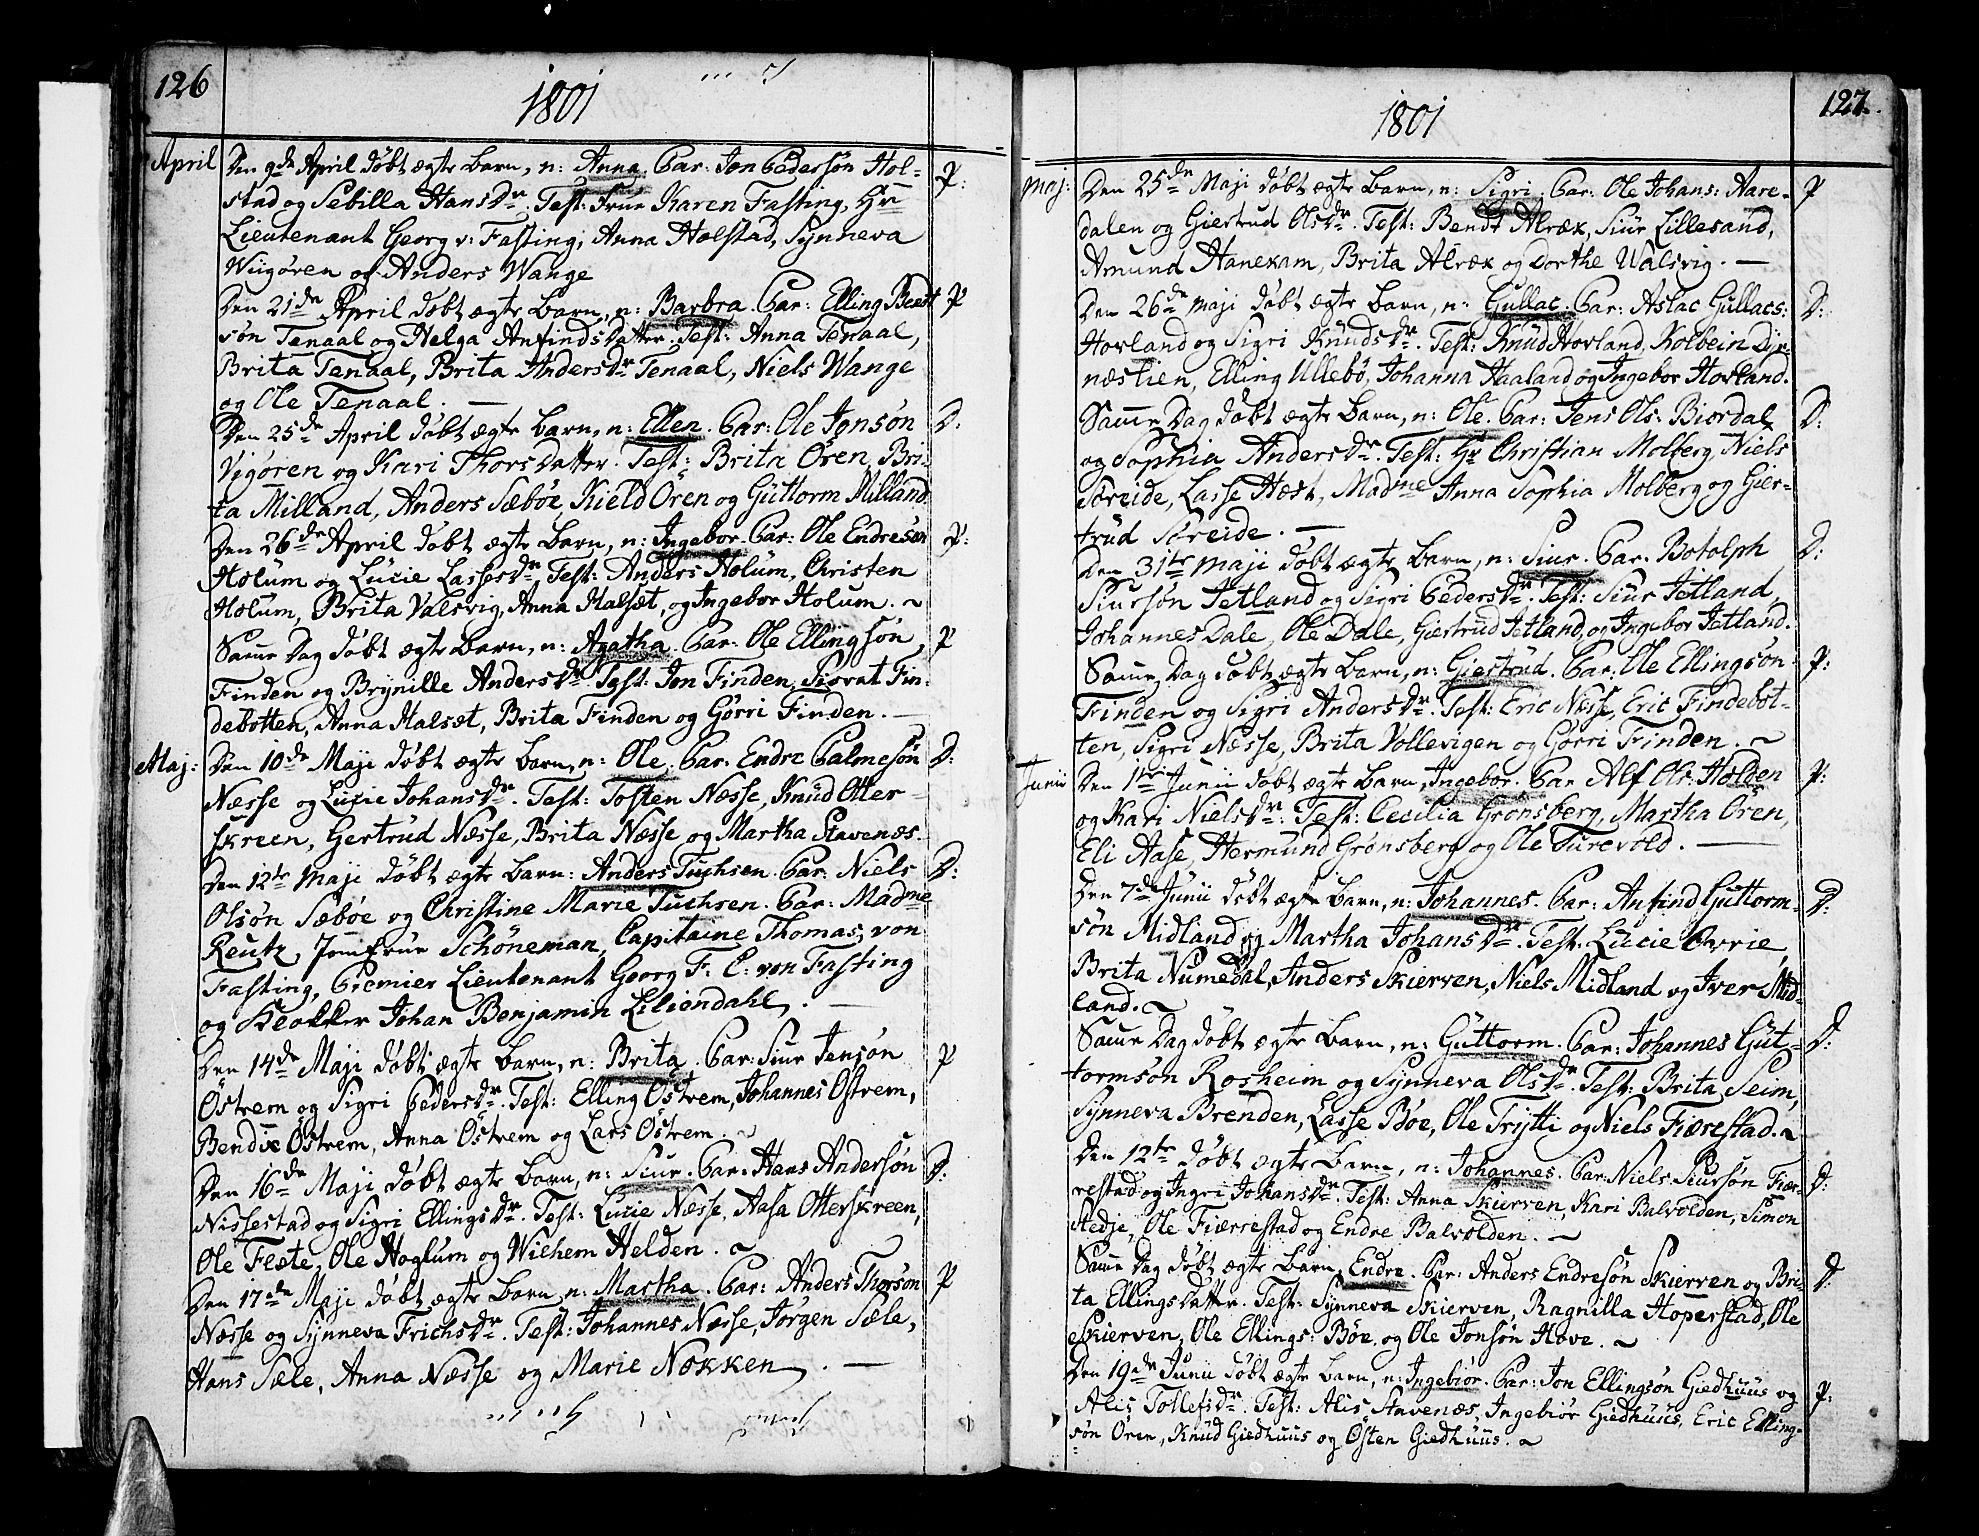 126
1801
April
Den 9de April døbt ægte Barn, n: Anna. Par: Jon Pedersøn Hol-
stad og Sebilla Hans Dr. Test: Frue Karen Fasting, Hr
Lieutenant Georg v: Fasting, Anna Holstad, Synneva
Wiigøren og Anders Wange
P:
Den 21de April døbt ægte Barn, n: Barbra. Par: Elling Bendt
søn Tenaal og Helga Anfinds Datter. Test: Anna Tenaal,
Brita Tenaal, Brita Anders Dr Tenaal, Niels Wange
og Ole Tenaal. —
P
Den 25de April døbt ægte Barn, n: Ellen. Par: Ole Jonsøn
Vigøren og Kari Thors Datter. Test: Brita Øren, Bri-
ta Milland, Anders Sæbøe, Kield Øren og Guttorm Milland
D:
Den 26de April døbt ægte Barn, n: Ingebor. Par: Ole Endresøn
Holum og Lucie Lasses Dr. Test: Anders Holum, Christen
Holum, Brita Valsvig, Anna Halsæt, og Ingebor Holum. ~
P:
Samme Dag døbt ægte Barn, n: Agatha. Par: Ole Ellingsøn
Finden og Brynille Anders Dr. Test: Jon Finden, Siovat Fin-
debotten, Anna Halsæt, Brita Finden og Gørri Finden. —
P
Maj:
Den 10de Maji døbt ægte Barn, n: Ole. Par: Endre Palmesøn
Næsse og Lucie Johans Dr. Test: Tosten Næsse, Knud Otter-
skreen, Gertrud Næsse, Brita Næsse og Martha Stavenæs.
D:
Den 12te Maji døbt ægte Barn: Anders Tuchsen. Par: Niels
Olsøn Sæbøe og Christine Marie Tuchsen. Par: Madme
Reutz, Jomfrue Schöneman, Capitaine Thomas, von
Fasting, Premier Lieutenant Georg F: C: von Fasting
og Klokker Johan Benjamin Liliendahl. —
D:
Den 14de Maji døbt ægte Barn, n: Brita. Par: Siur Jensøn
Østrem og Sigri Peders Dr. Test: Elling Østrem, Johannes Østrem,
Bendix Østrem, Anna Østrem og Lars Østrem. ~
P
Den 16de Maji døbt ægte Barn, n: Siur. Par: Hans Andersøn
Nissestad og Sigri Ellings Dr. Test: Lucie Næsse, Aasa Otterskreen,
Ole Flete, Ole Hoglum og Wilhem Helden. ~
D:
Den 17de Maji døbt ægte Barn, n: Martha. Par: Anders Thorsøn
Næsse og Synneva Frichs Dr. Test: Johannes Næsse, Jørgen Sæle,
Hans Sæle, Anna Næsse og Marie Nokken. —
P
127.
1801
Maj:
Den 25de Maji døbt ægte Barn, n: Sigri. Par: Ole Johans: Aare-
dalen og Giertrud Ols Dr. Test: Bendt Alræk, Siur Lillesand,
Amund Hanekam, Brita Alræk og Dorthe Walsvig. —
P
Den 26de Maji døbt ægte Barn, n: Gullac. Par: Aslac Gullacs:
Hovland og Sigri Knuds Dr. Test: Knud Hovland, Kolbein Dyr-
næslien, Elling Ullebø, Johanna Haaland og Ingebor Hovland.
D:
Samme Dag døbt ægte Barn, n: Ole. Par: Jens Ols: Biordal
og Sophia Anders Dr. Test: Hr Christian Molberg, Niels
Søreide, Lasse Hæst, Madme Anna Sophia Molberg og Gier-
trud Søreide. —
D:
Den 31te Maji døbt ægte Barn, n: Siur. Par: Botolph
Siursøn Jetland og Sigri Peders Dr. Test: Siur Jetland,
Johannes Dale, Ole Dale, Giertrud Jetland, og Ingebor Jetland.
D:
Samme Dag døbt ægte Barn, n: Giertrud. Par: Ole Ellingsøn
Finden og Sigri Anders Dr. Test: Eric Næsse, Eric Findebot-
ten, Sigri Næsse, Brita Vollevigen og Gørri Finden. ~
P:
Junii
Den 1te Junii døbt ægte Barn, Ingebor. Par Alf Ols: Holden
og Kari Niels Dr. Test: Cecilia Grønsberg, Martha Øren,
Eli Aase, Hermund Grønsberg og Ole Turevold. —
P:
Den 7de Junii døbt ægte Barn, n: Johannes. Par: Anfind Guttorm-
søn Midland og Martha Johans Dr. Test: Lucie Orrie,
Brita Numedal, Anders Skierven, Niels Midland og Iver Mid-
land. ~
D:
Samme Dag døbt ægte Barn, n: Guttorm. Par: Johannes Gut-
tormsøn Rosheim og Synneva Ols Dr. Test: Brita Seim,
Synneva Brenden, Lasse Bøe, Ole Trytti og Niels Fiærestad. ~
D:
Den 12te døbt ægte Barn, n: Johannes. Par: Niels Siursøn Fiær-
restad og Ingri Johans Dr. Test: Anna Skierven, Kari Balvolden, Simon
Hedje, Ole Fiærrestad og Endre Balvolden. ~
D:
Samme Dag døbt ægte Barn, Endre. Par: Anders Endresøn Skierven og Bri-
ta Ellings Datter. Test: Synneva Skierven, Ragnilla Hoperstad, Ole
Skierven, Ole Ellings: Bøe, og Ole Jonsøn Hove. ~
D:
Den 19de Junii døbt ægte Barn, n: Ingebiør. Par: Jon Ellingsøn Giedhuus og
Alis Tollefs Dr. Test: Alis Stavenæs, Ingebiør Giedhuus, Eric Elling-
søn Øren, Knud Giedhuus og Østen Giedhuus. ~
P: